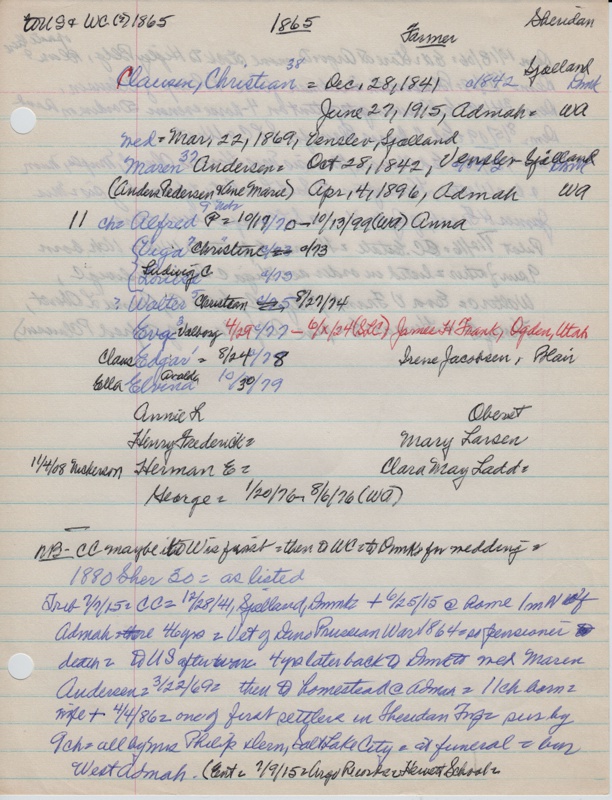 to US & WC (?) 1865 1865 Sheridan
Farmer
Clausen, Christian 38 = Dec, 28, 1841 c1842 Sjælland Dmk
June 27, 1915, Admah = WA
med = Mar, 22, 1869, Venslev, Sjælland
Maren 37 Andersen = Oct 28, 1842, Venslev Sjælland Dmk
(Anders Pedersen & Ane Marie) Apr, 4, 1896, Admah WA
11 ch = Alfred P = 10/17/70 - 10/13/99 (WA) Anna
Viga Christine 9/73
Ludivig C
Louisa 9/73
? Walter Christian 8/27/74
Eva 3 Valborg 4/29/77 - 6/x/24 (SLC) James H Frank, Ogden, Utah
Claus Edgar = 8/24/78 Irene Jacobsen, Blair
Ella Elvina Aralda 10/30/79
Annie L Oberst
Henry Frederick = Mary Larsen
11/4/08 Nickerson Herman E = Clara May Ladd =
George = 1/20/76 - 8/6/76 (WA)
NB - CC maybe to Wis first = then to WC = to Dmk for wedding =
1880 Sher 30 = as listed
Trib 7/7/15 = CC = 12/28/41, Sjælland, Dmmk + 6/25/15 @ home 1 m N of
Admah = here 46 yrs = Vet of Dano Prussian War 1864 = so pensioner to
death = to US after war 4 yrs later back to Dmk to wed Maren
Andersen = 3/22/69 = then to homestead @ Admah = 11 ch born =
wife + 4/4/86 = one of first settlers in Sheridan Twp = surv by
9 ch = all by Mrs Philip Dern, Salt Lake City = at funeral = bur
West Admah. (Ent = 7/9/15 = Argo Reworks = Hewett School =